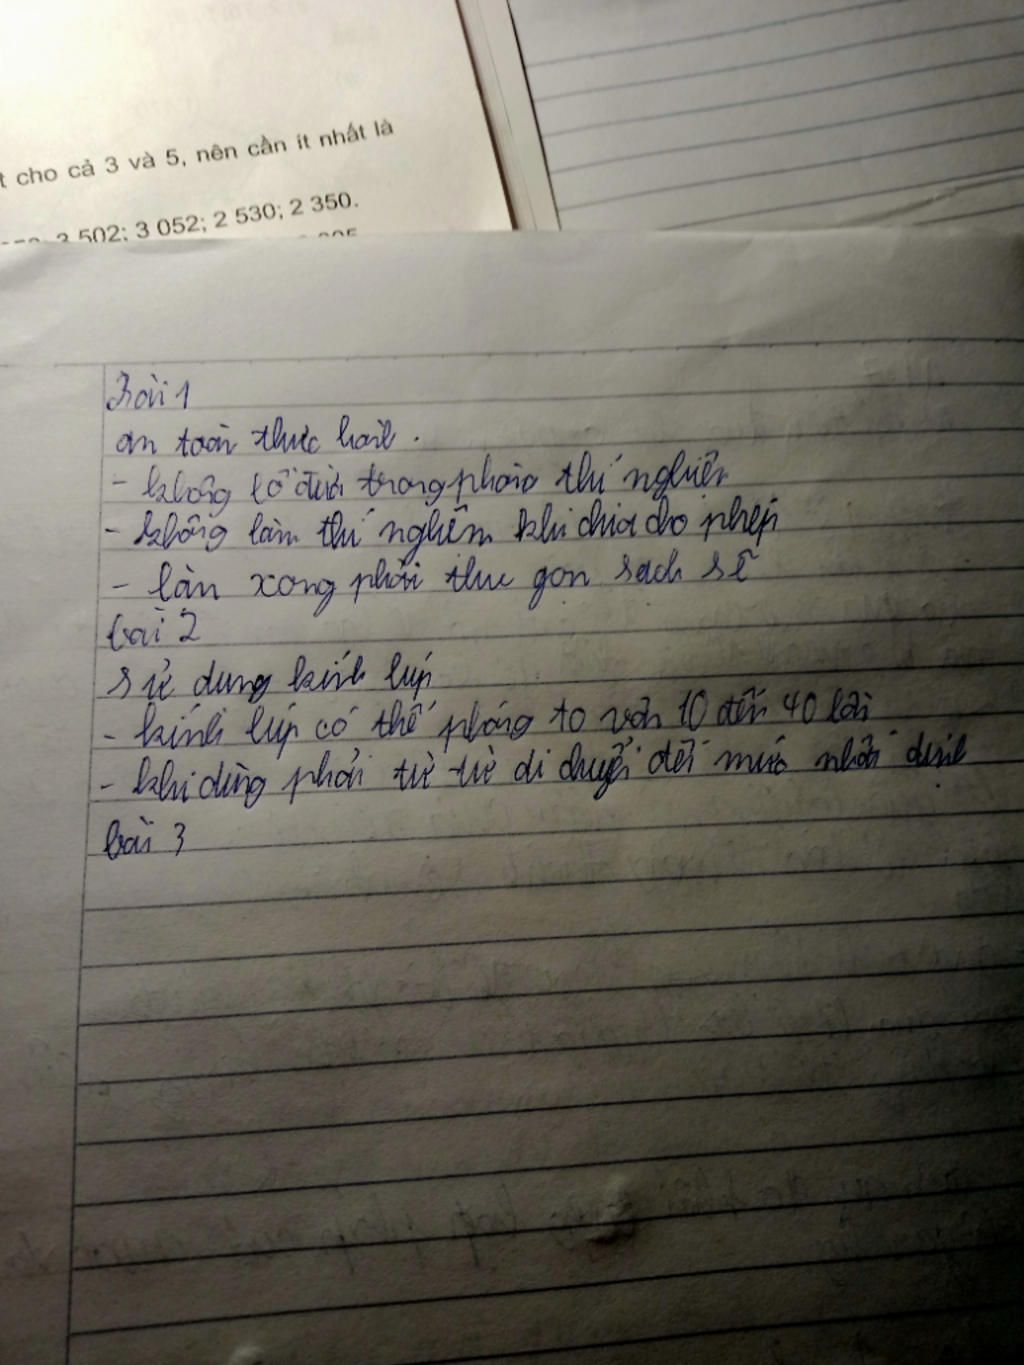 t cho cả 3 và 5, nên cần ít nhất là
3 502; 3 052; 2 530; 2 350.
Bài 1
an toàn thực hành.
- không đùa trong phòng thí nghiệm
- không làm thí nghiệm khi chưa cho phép
- làn xong phải thu gọn sạch sẽ
bài 2
sử dụng kính lúp
- kính lúp có thể phóng to vân 10 đến 40 lần
- khi dùng phải từ từ di chuyển đến mức nhất định
bài 3